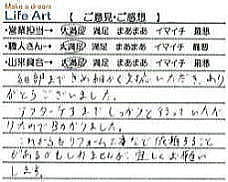 Make a dream
Life Art 【ご意見・ご感想】
・営業担当→ 大満足 満足 まあまあ イマイチ 最悪
・職人さん→ 大満足 満足 まあまあ イマイチ 最悪
・出来具合→ 大満足 満足 まあまあ イマイチ 最悪
細部まできめ細かく対応いただき、あり
がとうございました。
アフターケアまでしっかりと行っていただ
けたので助かりました。
これからもリフォーム工事など依頼すること
があるかもしれませんが、宜しくお願い
します。